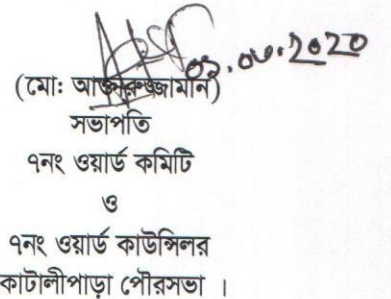 ০২.০৬.২০২০
(মো: আক্তারুজ্জামান)
সভাপতি
৭নং ওয়ার্ড কমিটি
ও
৭নং ওয়ার্ড কাউন্সিলর
কোটালীপাড়া পৌরসভা ।